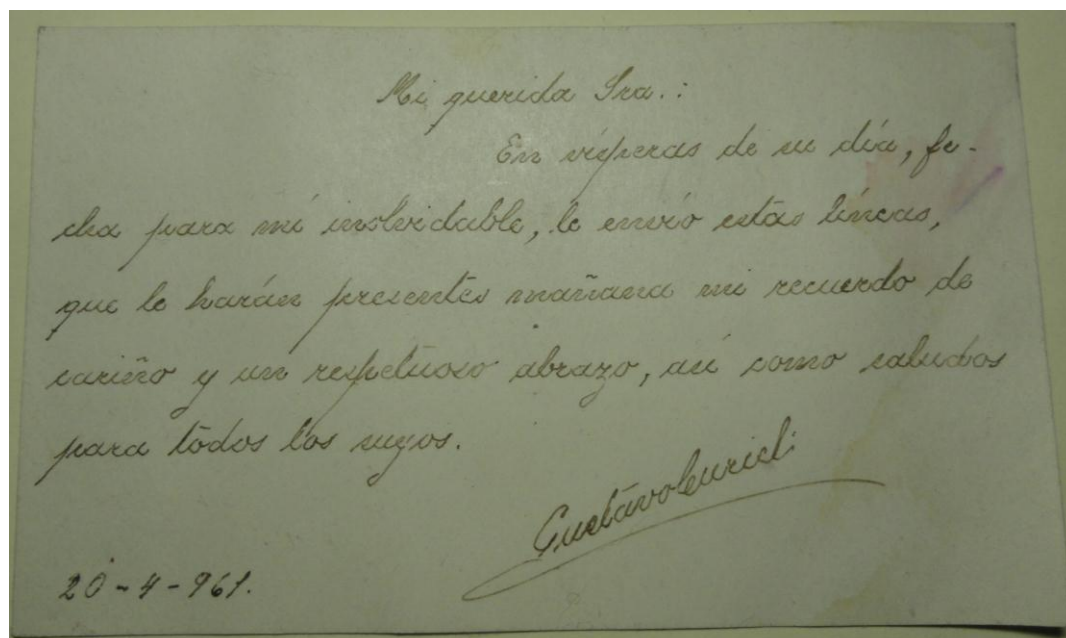 Mi querida Sra.:
En vísperas de su día, fe-
cha para mí inolvidable, le envío estas líneas,
que le harán presentes mañana mi recuerdo de
cariño y un respetuoso abrazo, así como saludos
para todos los suyos.
Gustavo
20-4-961.